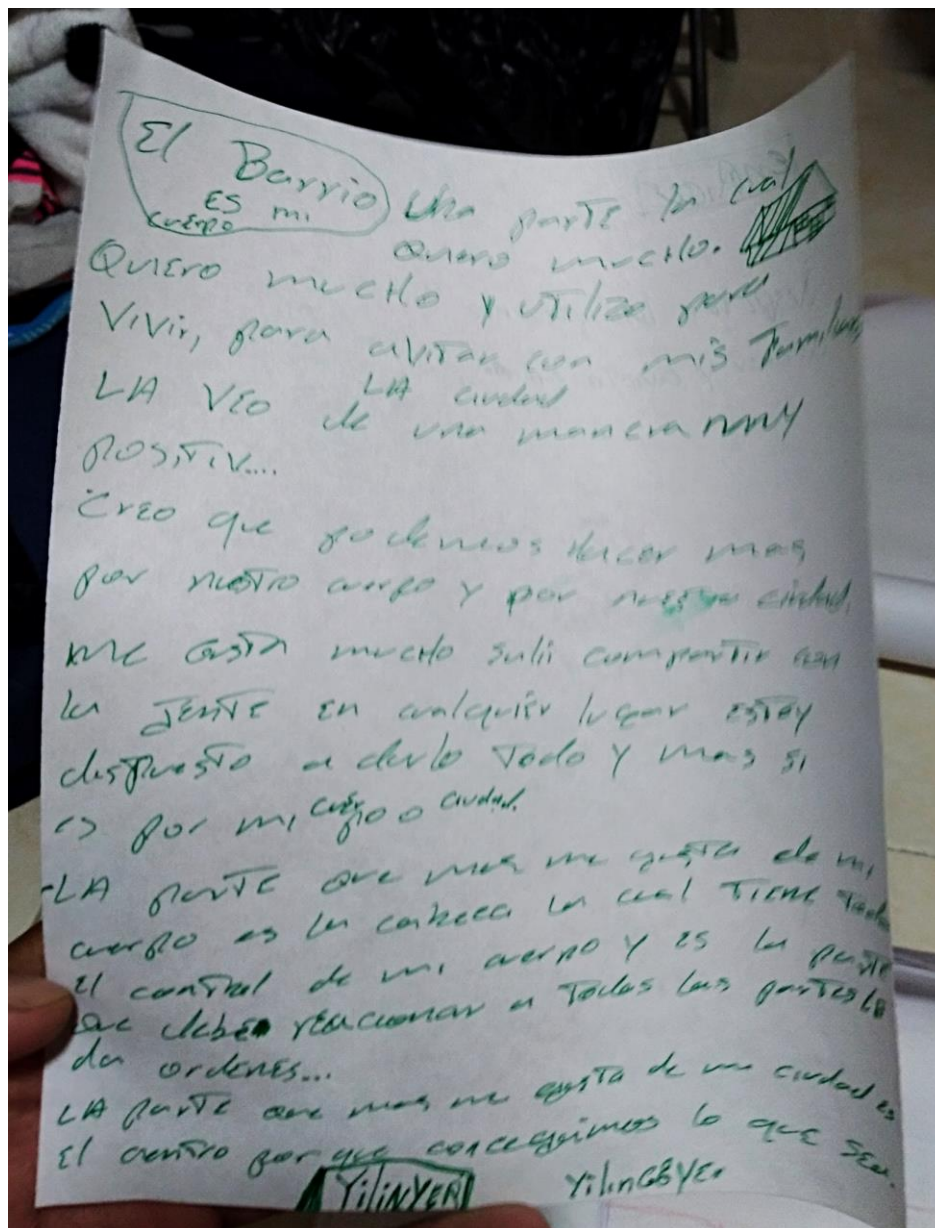 El Barrio
ES mi
cuerpo
Una parte la cual
Quiero mucHo.
Quiero mucHo y utilizo para
Vivir, para avitar con mis Familiares
LA ciudad
LA VEO de una manera muy
positiv....
Creo que podemos Hacer mas,
por nuestro cuerpo y por nuestra ciudad.
me Gusta mucHo salir compartir con
la JENTE en cualquier lugar ESTOY
dispuesto a darlo Todo y mas si
es por mi cuerpo o ciudad.
-LA parte que mas me gusta de mi
cuerpo es la cabeca la cual TIENE Todo
El control de mi cuerpo y es la parte
que debe reaccionar a Todas las partes le
da ordenes...
LA parte que mas me gusta de mi ciudad es
El centro por que conceguimos lo que sea.
YiliNYER